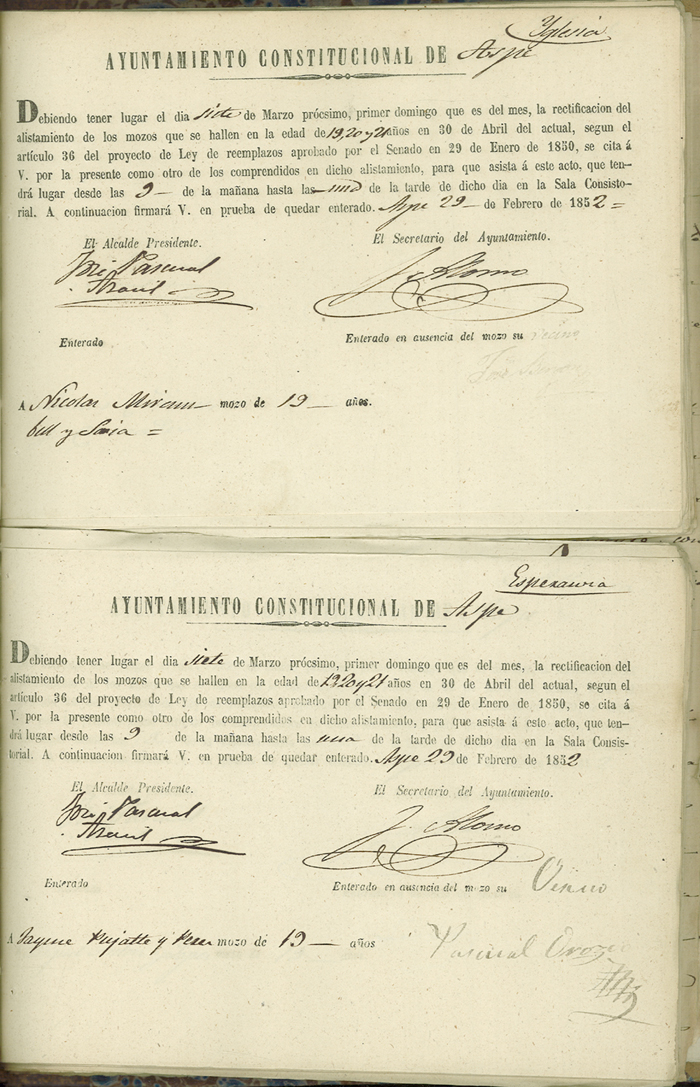 Yglesia
AYUNTAMIENTO CONSTITUCIONAL DE Aspe
Debiendo tener lugar el dia siete de Marzo prócsimo, primer domingo que es del mes, la rectificacion del
alistamiento de los mozos que se hallen en la edad de 19, 20 y 21 años en 30 de Abril del actual, segun el
artículo 36 del proyecto de Ley de reemplazos aprobado por el Senado en 29 de Enero de 1850, se cita á
V. por la presente como otro de los comprendidos en dicho alistamiento, para que asista á este acto, que ten-
drá lugar desde las 9 — de la mañana hasta las una de la tarde de dicho dia en la Sala Consisto-
rial. A continuacion firmará V. en prueba de quedar enterado. Aspe 29 — de Febrero de 1852 =
El Alcalde Presidente. El Secretario del Ayuntamiento.
José Pascual J. Alonso
Enterado Enterado en ausencia del mozo su vecino
A Nicolas Miram mozo de 19 — años.
bell y Soria =
Esperanza
AYUNTAMIENTO CONSTITUCIONAL DE Aspe
Debiendo tener lugar el dia siete de Marzo prócsimo, primer domingo que es del mes, la rectificacion del
alistamiento de los mozos que se hallen en la edad de 19 20 y 21 años en 30 de Abril del actual, segun el
artículo 36 del proyecto de Ley de reemplazos aprobado por el Senado en 29 de Enero de 1850, se cita á
V. por la presente como otro de los comprendidos en dicho alistamiento, para que asista á este acto, que ten-
drá lugar desde las 9 de la mañana hasta las una de la tarde de dicho dia en la Sala Consis-
torial. A continuacion firmará V. en prueba de quedar enterado. Aspe 29 de Febrero de 1852
El Alcalde Presidente. El Secretario del Ayuntamiento.
José Pascual J. Alonso
Enterado Enterado en ausencia del mozo su
A Jayme y mozo de 19 — años
Pascual